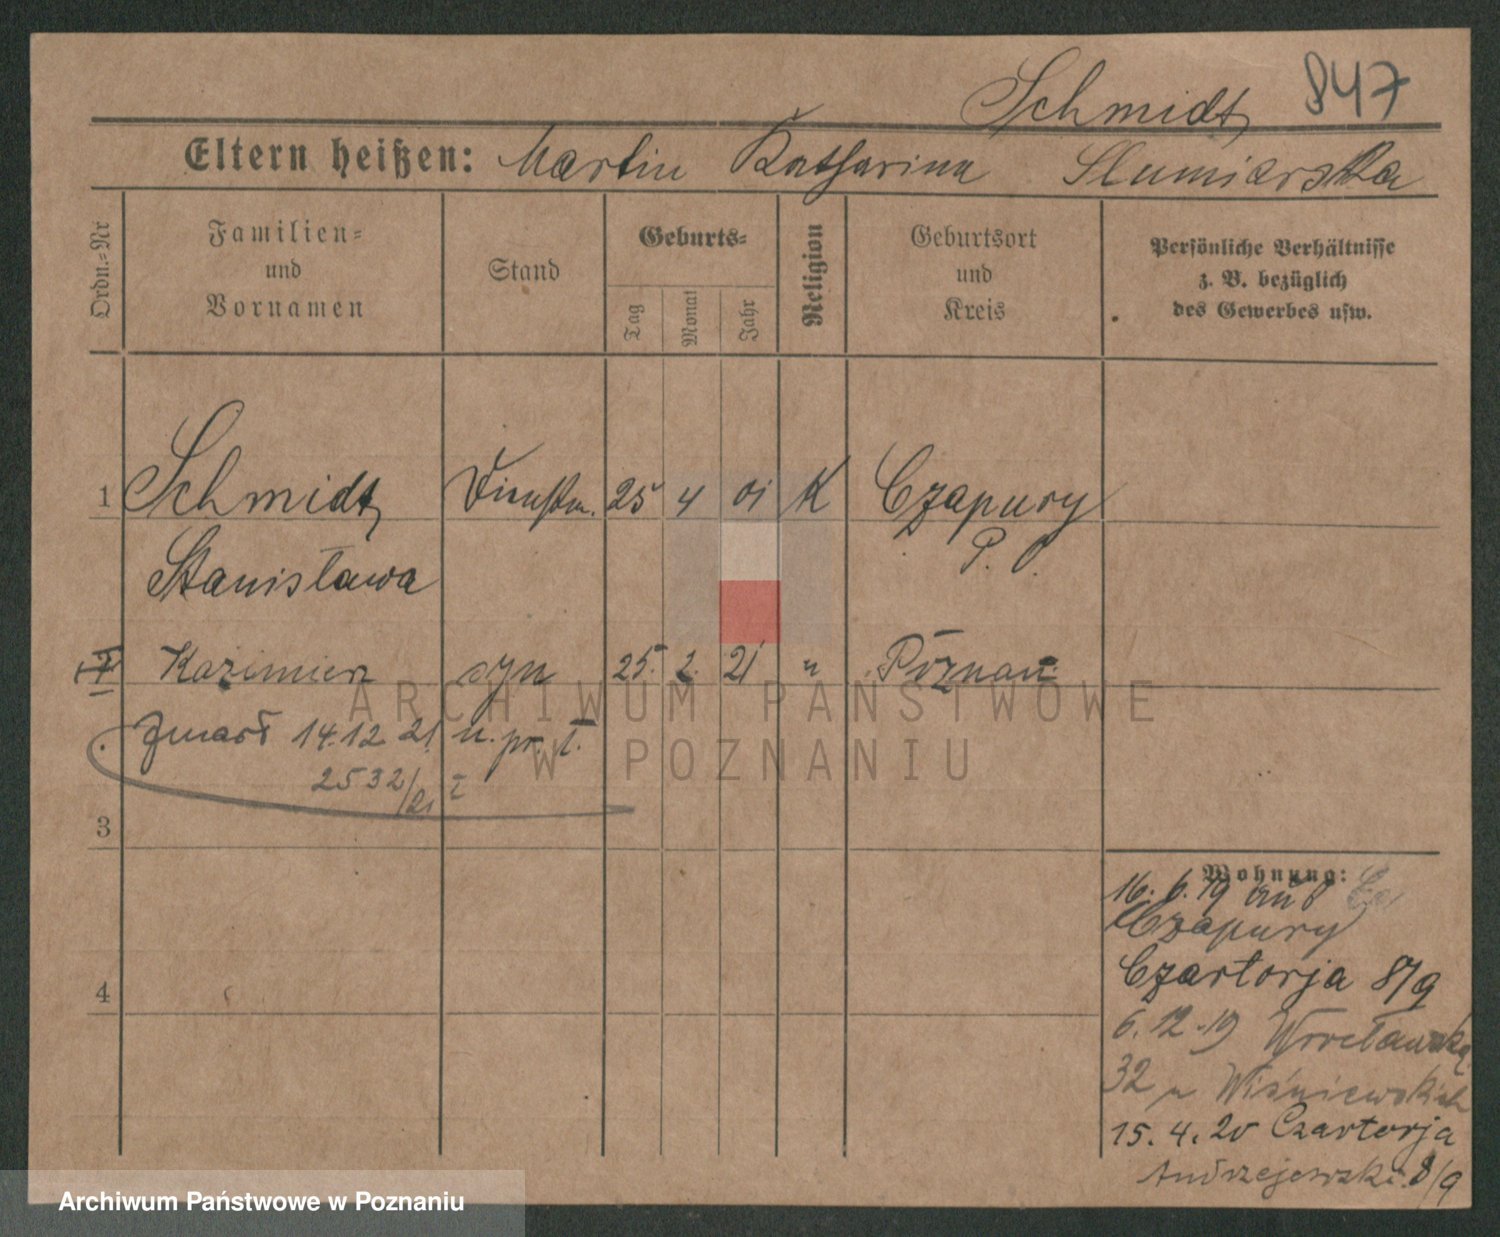 Schmidt 847
Eltern heißen: Martin Katharina Slumiarska
Ordn.=Nr
Familien=
und
Vornamen
Stand
Geburts=
Tag
Monat
Jahr
Religion
Geburtsort
und
Kreis
Persönliche Verhältnisse
z. B. bezüglich
des Gewerbes usw.
1 Schmidt Dienstm. 25 4 01 K Czapury
Stanisława P. O.
Kazimierz syn 25. 2. 21 " Poznań
Zmarł 14.12 21 u. pr. I.
2532/21 I
3
4
Wohnung:
16. 6. 19 aus
Czapury
Czartorja 8/9
6. 12. 19 Wrocławska
32 u Wiśniewskich
15. 4. 20 Czartorja
Andrzejewski 8/9
ARCHIWUM PAŃSTWOWE
W POZNANIU
Archiwum Państwowe w Poznaniu